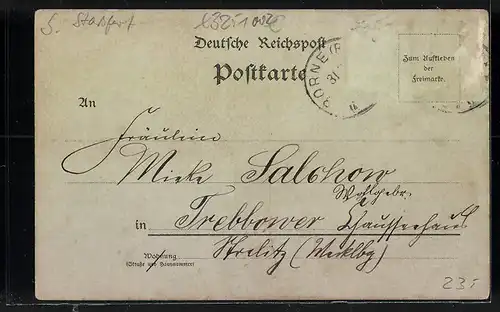 S. Staßfurt
Deutsche Reichspost
Postkarte
BORNE
31
Zum Aufkleben
der
Freimarke.
An
Fräulein
Mieke Salchow
Wohlgebr.
in Trebbower Chausseehaus
Wohnung
(Straße und Hausnummer)
Strelitz (Mecklbg)
235